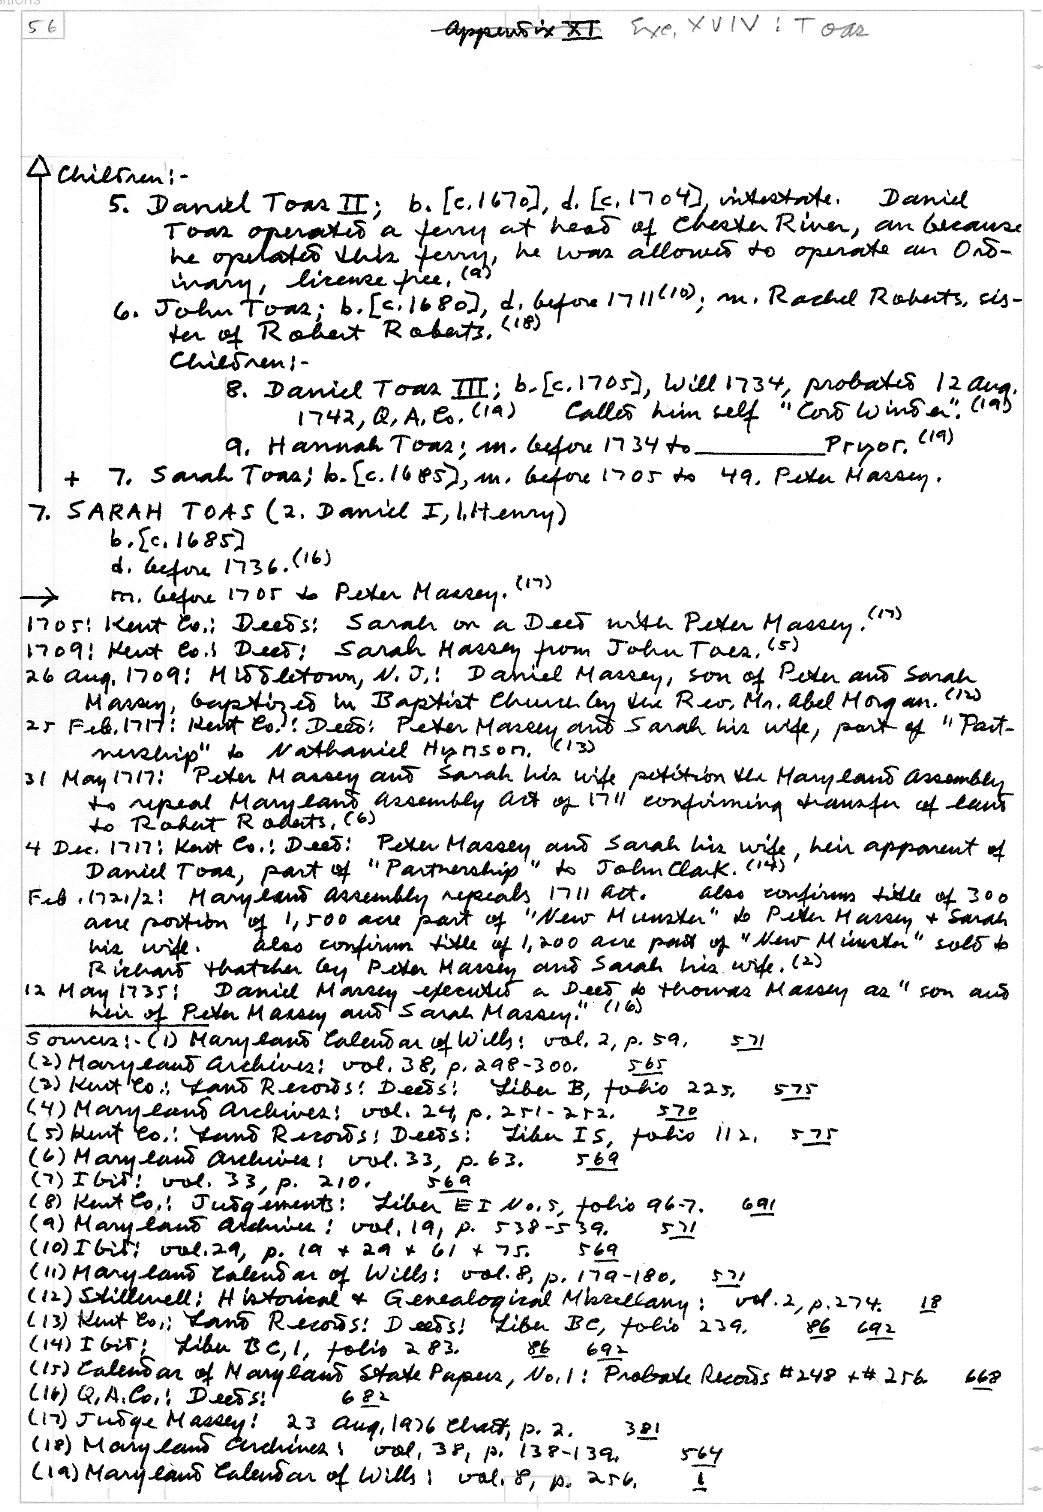 56
Appendix XI Exc. XVIV : Toas
Children:-
5. Daniel Toas II; b. [c.1670], d. [c. 1704], intestate. Daniel
Toas operated a ferry at head of Chester River, an because
he operated this ferry, he was allowed to operate an Ord-
inary, license free.(9)
6. John Toas; b. [c.1680], d. before 1711(10); m. Rachel Roberts, sis-
ter of Robert Roberts.(18)
Children:-
8. Daniel Toas III; b. [c.1705], Will 1734, probated 12 Aug.
1742, Q.A.Co.(19) Called him self "Cord Winder".(19)
9. Hannah Toas; m. before 1734 to ________ Pryor.(19)
+ 7. Sarah Toas; b. [c.1685], m. before 1705 to 49. Peter Massey.
7. SARAH TOAS (2. Daniel I, 1. Henry)
b. [c.1685]
d. before 1736.(16)
m. before 1705 to Peter Massey.(17)
1705: Kent Co.: Deeds: Sarah on a Deed with Peter Massey.(17)
1709: Kent Co.: Deed: Sarah Massey from John Toas.(5)
26 Aug. 1709: Middletown, N.J.: Daniel Massey, son of Peter and Sarah
Massey, baptized in Baptist Church by the Rev. Mr. Abel Morgan.(12)
25 Feb. 1717: Kent Co.: Deed: Peter Massey and Sarah his wife, part of "Part-
nership" to Nathaniel Hynson.(13)
31 May 1717: Peter Massey and Sarah his wife petition the Maryland Assembly
to repeal Maryland Assembly Act of 1711 confirming transfer of land
to Robert Roberts.(6)
4 Dec. 1717: Kent Co.: Deed: Peter Massey and Sarah his wife, heir apparent of
Daniel Toas, part of "Partnership" to John Clark.(14)
Feb. 1721/2: Maryland Assembly repeals 1711 Act. Also confirms title of 300
acre portion of 1,500 acre part of "New Munster" to Peter Massey + Sarah
his wife. Also confirms title of 1,200 acre part of "New Munster" sold to
Richard Thatcher by Peter Massey and Sarah his wife.(2)
12 May 1735: Daniel Massey executed a Deed to Thomas Massey as "son and
heir of Peter Massey and Sarah Massey."(16)
Sources:- (1) Maryland Calendar of Wills: vol. 2, p. 59. 571
(2) Maryland Archives: vol. 38, p. 298-300. 565
(3) Kent Co.: Land Records: Deeds: Liber B, folio 225. 575
(4) Maryland Archives: vol. 24, p. 251-252. 570
(5) Kent Co.: Land Records: Deeds: Liber IS, folio 112. 575
(6) Maryland Archives: vol. 33, p. 63. 569
(7) Ibid: vol. 33, p. 210. 569
(8) Kent Co.: Judgements: Liber EI No. 5, folio 96-7. 691
(9) Maryland Archives: vol. 19, p. 538-539. 571
(10) Ibid: vol. 29, p. 19 + 29 + 61 + 75. 569
(11) Maryland Calendar of Wills: vol. 8, p. 179-180. 571
(12) Stillwell: Historical + Genealogical Miscellany: vol. 2, p. 274. 18
(13) Kent Co.: Land Records: Deeds: Liber BC, folio 239. 86 692
(14) Ibid: Liber BC, 1, folio 283. 86 692
(15) Calendar of Maryland State Papers, No. 1: Probate Records #248 + #256 668
(16) Q.A.Co.: Deeds: 682
(17) Judge Massey: 23 Aug. 1976 Chart, p. 2. 381
(18) Maryland Archives: vol. 38, p. 138-139. 564
(19) Maryland Calendar of Wills: vol. 8, p. 256. 1